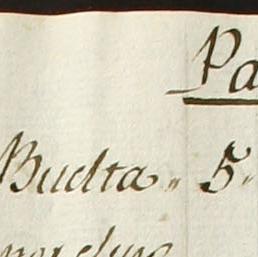 Pa
Buelta 5